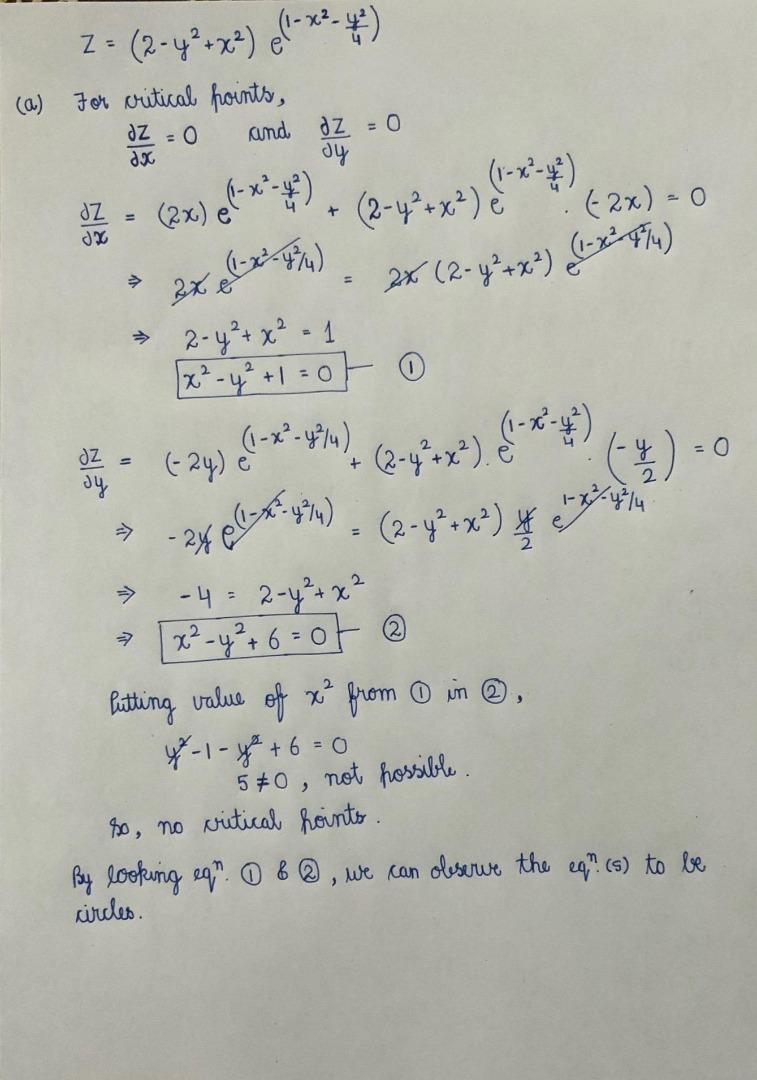 Z = (2-y²+x²) e^(1-x²-y²/4)
(a) For critical points,
∂Z/∂x = 0 and ∂Z/∂y = 0
∂Z/∂x = (2x) e^(1-x²-y²/4) + (2-y²+x²) e^(1-x²-y²/4) . (-2x) = 0
⇒ 2x e^(1-x²-y²/4) = 2x (2-y²+x²) e^(1-x²-y²/4)
⇒ 2-y²+x² = 1
x²-y²+1 = 0 — ①
∂Z/∂y = (-2y) e^(1-x²-y²/4) + (2-y²+x²) . e^(1-x²-y²/4) . (-y/2) = 0
⇒ -2y e^(1-x²-y²/4) = (2-y²+x²) y/2 e^1-x²-y²/4
⇒ -4 = 2-y²+x²
⇒ x²-y²+6 = 0 — ②
Putting value of x² from ① in ②,
y²-1-y²+6 = 0
5 ≠ 0, not possible.
So, no critical points.
By looking eqⁿ. ① & ②, we can observe the eqⁿ.(s) to be
circles.